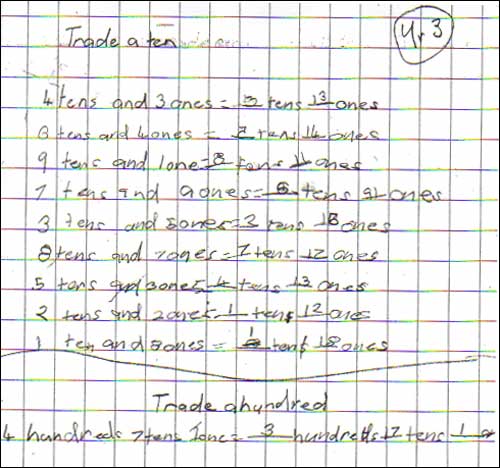 Yr 3
Trade a ten
4 tens and 3 ones = 3 tens 13 ones
8 tens and 4 ones = 7 tens 14 ones
9 tens and 1 one = 8 tens 11 ones
7 tens and 9 ones = 6 tens ones
3 tens and 8 ones = 3 tens 18 ones
8 tens and 7 ones = 7 tens 17 ones
5 tens and 3 ones = 4 tens 13 ones
2 tens and 2 ones = 1 tens 12 one
1 ten and 8 ones = tens 18 ones
Trade a hundred
4 hundreds 7 tens 1 one = 3 hundreds 17 tens 1